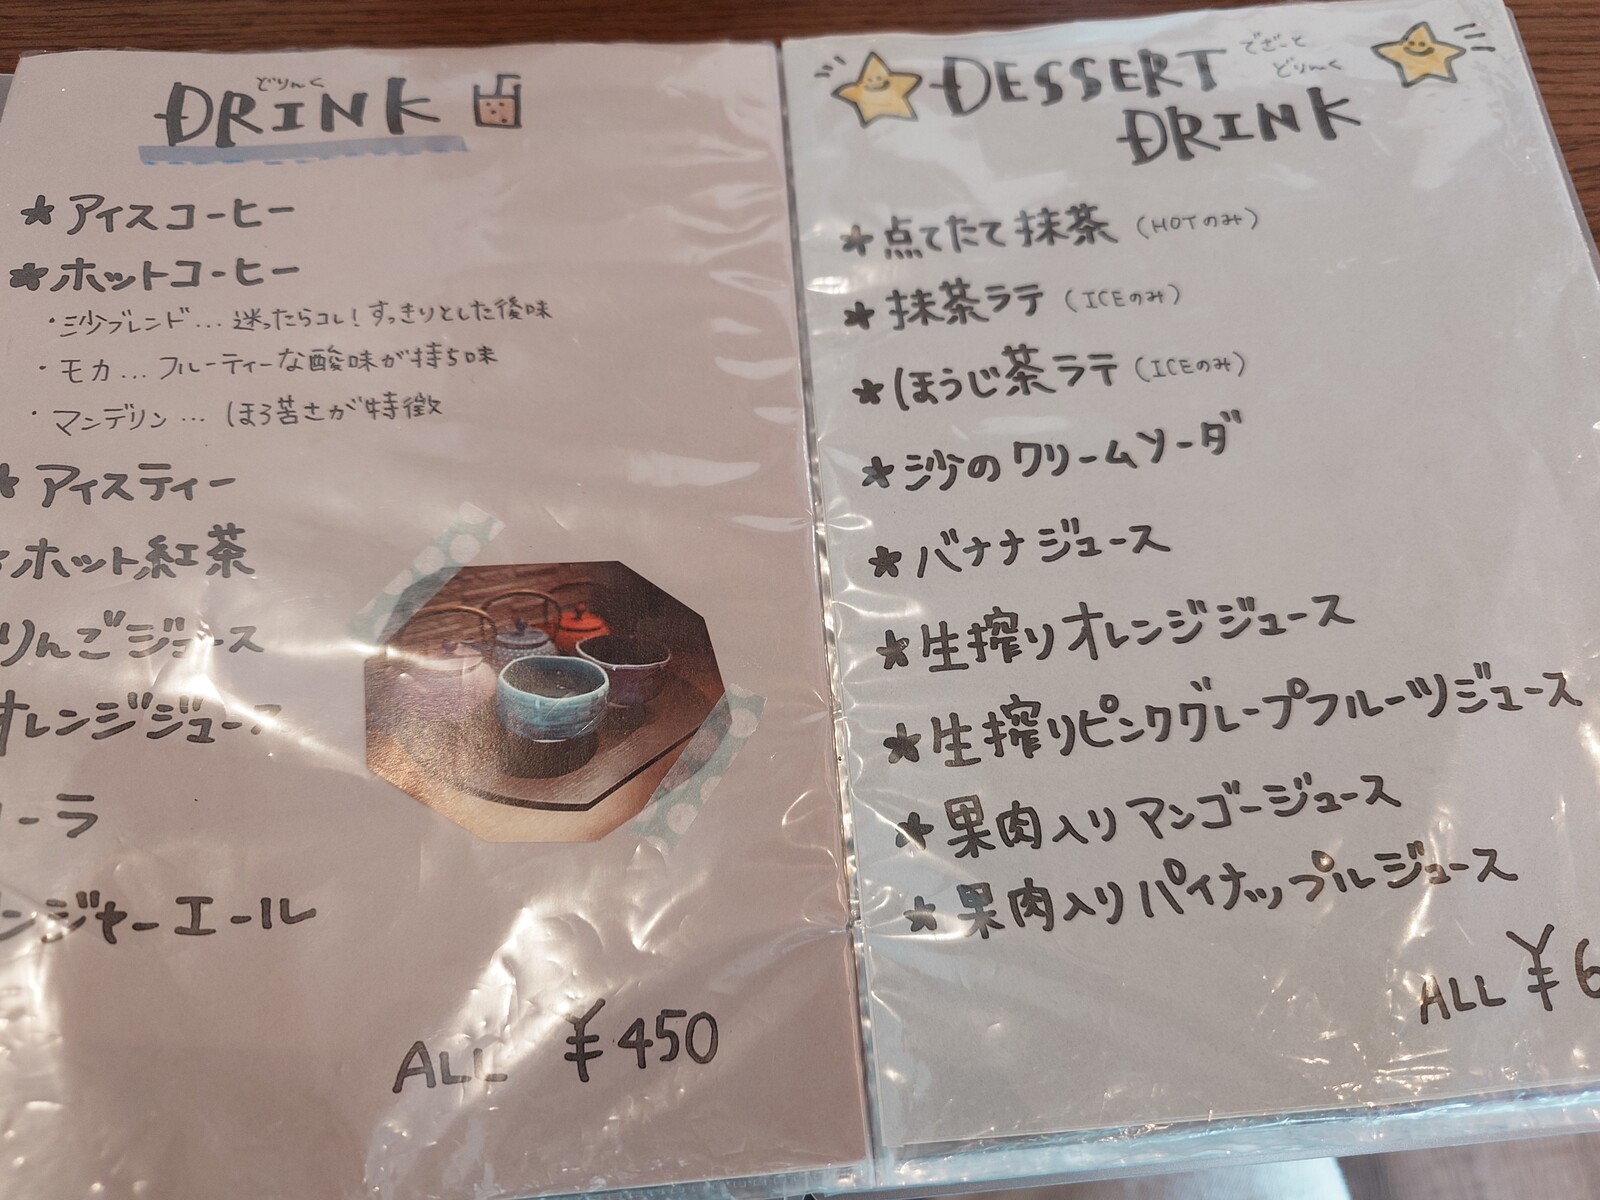 どりんく
DRINK
★アイスコーヒー
★ホットコーヒー
・沙ブレンド…迷ったらコレ!すっきりとした後味
・モカ…フルーティーな酸味が持ち味
・マンデリン…ほろ苦さが特徴
★アイスティー
★ホット紅茶
りんごジュース
オレンジジュース
ーラ
ンジャーエール
ALL ¥450
DESSERT
でざーと
どりんく
DRINK
★点てたて抹茶(HOTのみ)
★抹茶ラテ(ICEのみ)
★ほうじ茶ラテ(ICEのみ)
★沙のクリームソーダ
★バナナジュース
★生搾りオレンジジュース
★生搾りピンクグレープフルーツジュース
★果肉入りマンゴージュース
★果肉入りパイナップルジュース
ALL ¥6